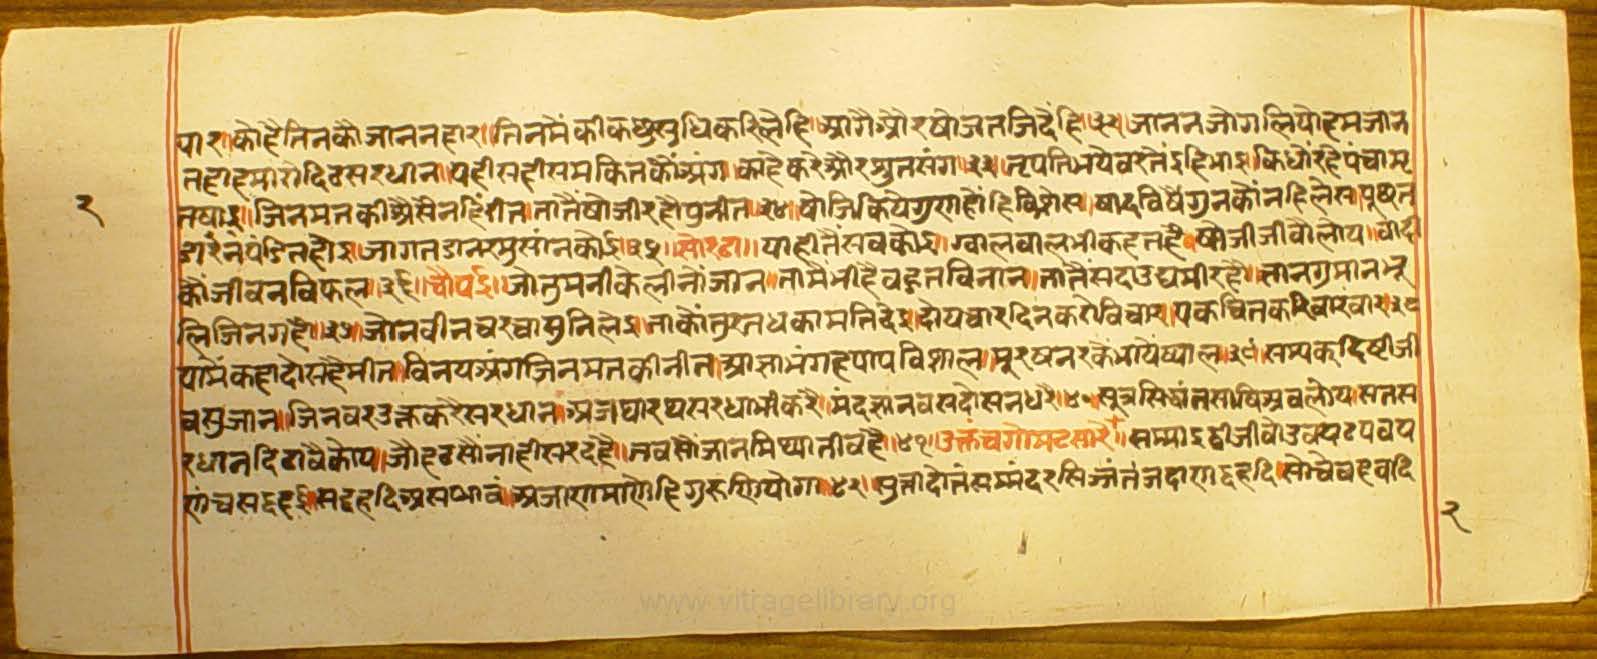 पार।को है तिनकौ जाननहार॥तिनमैं की कछु सुधि करि लेहि॥आगै और षोज तजि देहि॥३२॥जानन जोग लियो हम जान
न ही हमारो दिढ सरधान॥यही सही समकित कौ अंग॥काहे कर और श्रुत संग॥३३॥नृपति भये वरतैं इहि भाइ॥किधौं रहै पंचामृ
त षाइ॥जिनमत की औसै नहिं रीत॥तातैं षोजी रहौ पुनीत॥३४॥षोजि कियै गुरा होहि विशेस॥षाद विषै गुन कौ नहि लेस॥पूछत
नर पंडित होइ॥जागत डान र मुसां न कोइ॥३५॥सोरठा॥याही तैं सव कोइ॥ग्वाल वाल भी कहत है॥षोजी जीवौ लोय॥वादी
कौं जीवन विफल॥३६॥चौपई॥जो तुम नीके लीनौं जान॥तामै भी है वहुत विनान॥तातैं सद उद्यमी रहै॥ज्ञान गुमान भू
लि जिन गहै॥३७॥जो नवीन चरचा सुनि लेइ॥ताकौं तुरत धका मति देइ॥दोय चार दिन करो विचार॥एक चित करि वारवार॥३८
यामै कहा दोस है मीत॥विनय अंग जिनमत की नीत॥आज्ञा भंग हि पाप विशाल॥मूरष नर के भायें ष्याल॥३९॥सम्यक दिष्टी जी
व सुजान॥जिनवर उक्त करै सरधान॥अजथारथ सरधा भी करै॥मंद ज्ञान वस दोस न धरै॥४०॥सूत्र सिद्धांत साषि अवलोय॥सत स
रधान दिढावै कोय॥जौ हठ सौं नाही सरदहै॥तव सौ जान मिथ्याती वहै॥४१॥उक्तं च गोमटसारे॥सम्माइट्ठी जीवो उवइट्ठं पवय
णं च सद्दहई॥सद्दहदि असप्भावं॥अजाणमाणो हि गुरुणियोगा॥४२॥सुत्तादो तं सम्मं दरसिज्जंतं जदा ण सद्दहदि॥सो चेव हवदि
२
२
www.vitragelibrary.org